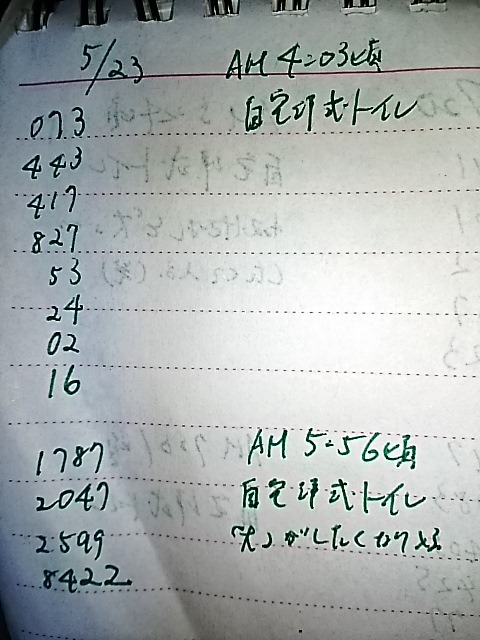 5/23 AM 4:03頃
073 自宅洋式トイレ
443
417
827
53
24
02
16
1787 AM 5:56頃
2047 自宅洋式トイレ
2599 がしたくなりける
8422